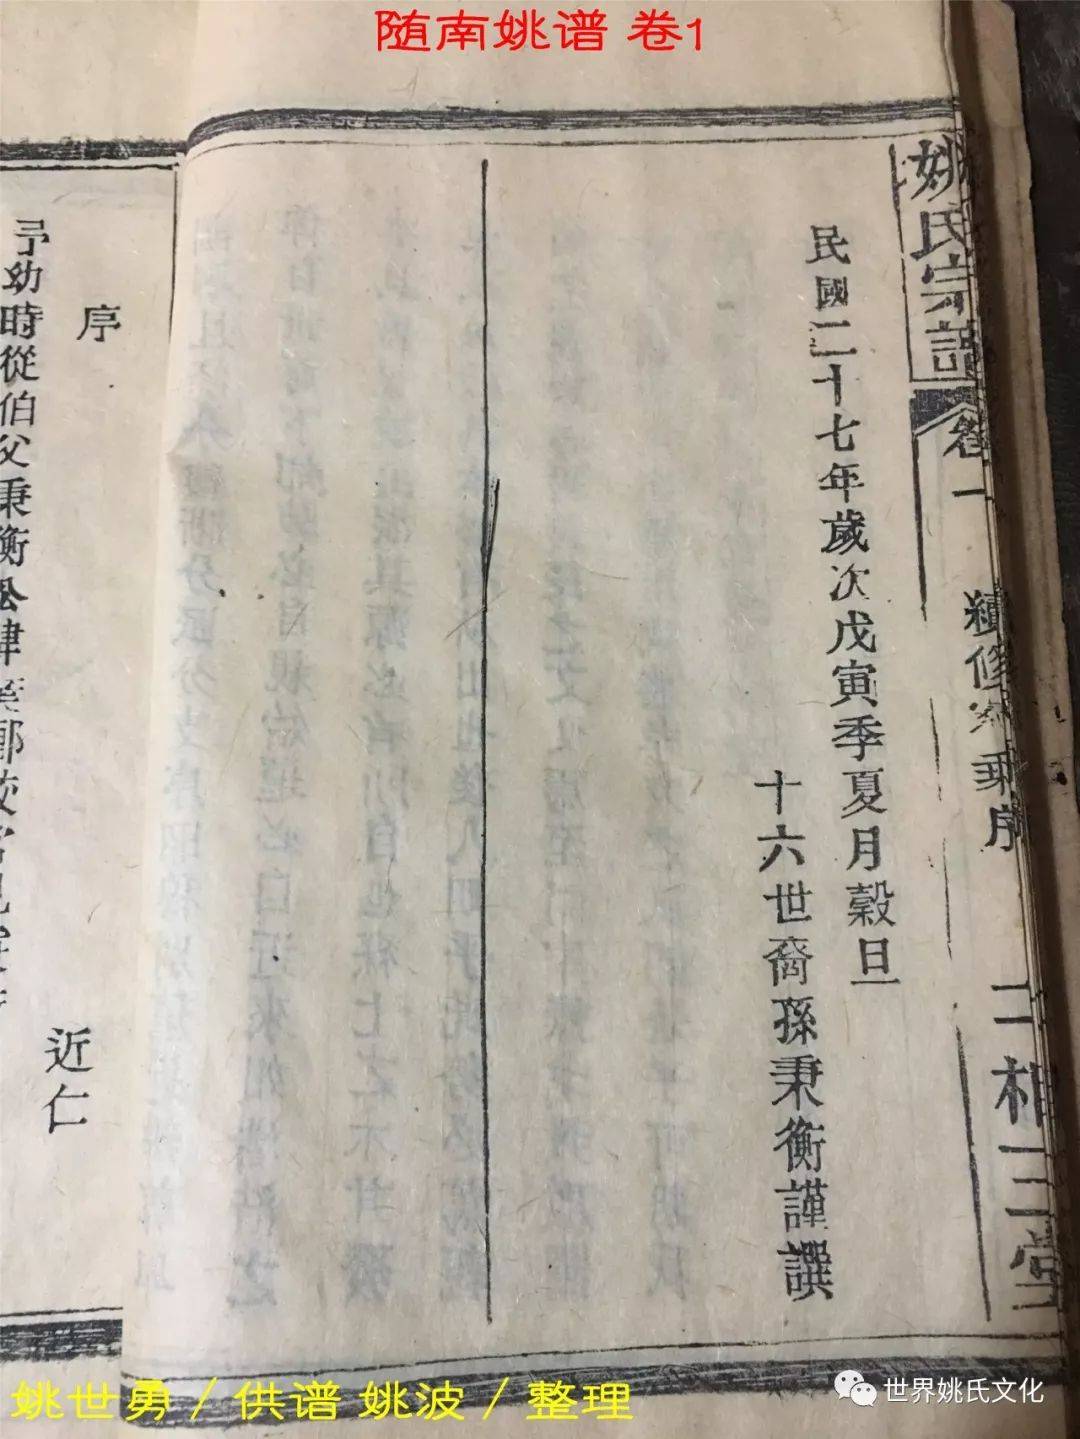 随南姚谱 卷1
姚氏宗譜
卷一
續修家乘序
二相三堂
民國二十七年歲次戊寅季夏月穀旦
十六世裔孫秉衡謹譔
序
近仁
予幼時從伯父秉衡公肄業鄉校
姚世勇／供谱 姚波／整理
世界姚氏文化